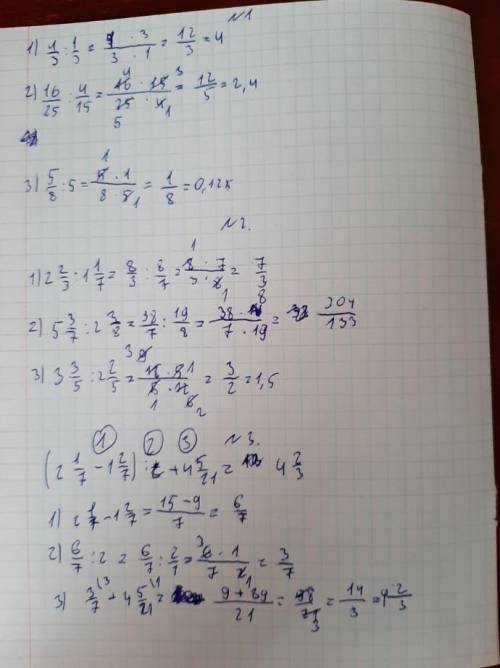 N1
1) 4/3 : 1/3 = 4 · 3 / 3 · 1 = 12/3 = 4
2) 16/25 : 4/15 = 16 · 15 / 25 · 4 = 12/5 = 2,4
3) 5/8 : 5 = 5 · 1 / 8 · 5 = 1/8 = 0,125
N2.
1) 2 2/3 : 1 1/7 = 8/3 : 8/7 = 8 · 7 / 3 · 8 = 7/3
2) 5 3/7 : 2 3/8 = 38/7 : 19/8 = 38 · 8 / 7 · 19 = 304/133
3) 3 3/5 : 2 2/5 = = 3/2 = 1,5
1 2 3 N3.
(2 1/7 - 1 2/7) : 2 + 4 5/21 = 4 2/3
1) 2 1/7 - 1 2/7 = 15-9/7 = 6/7
2) 6/7 : 2 = 6/7 : 2/1 = 6 · 1 / 7 · 2 = 3/7
3) 3/7 + 4 5/21 = 9+89/21 = 98/21 = 14/3 = 4 2/3